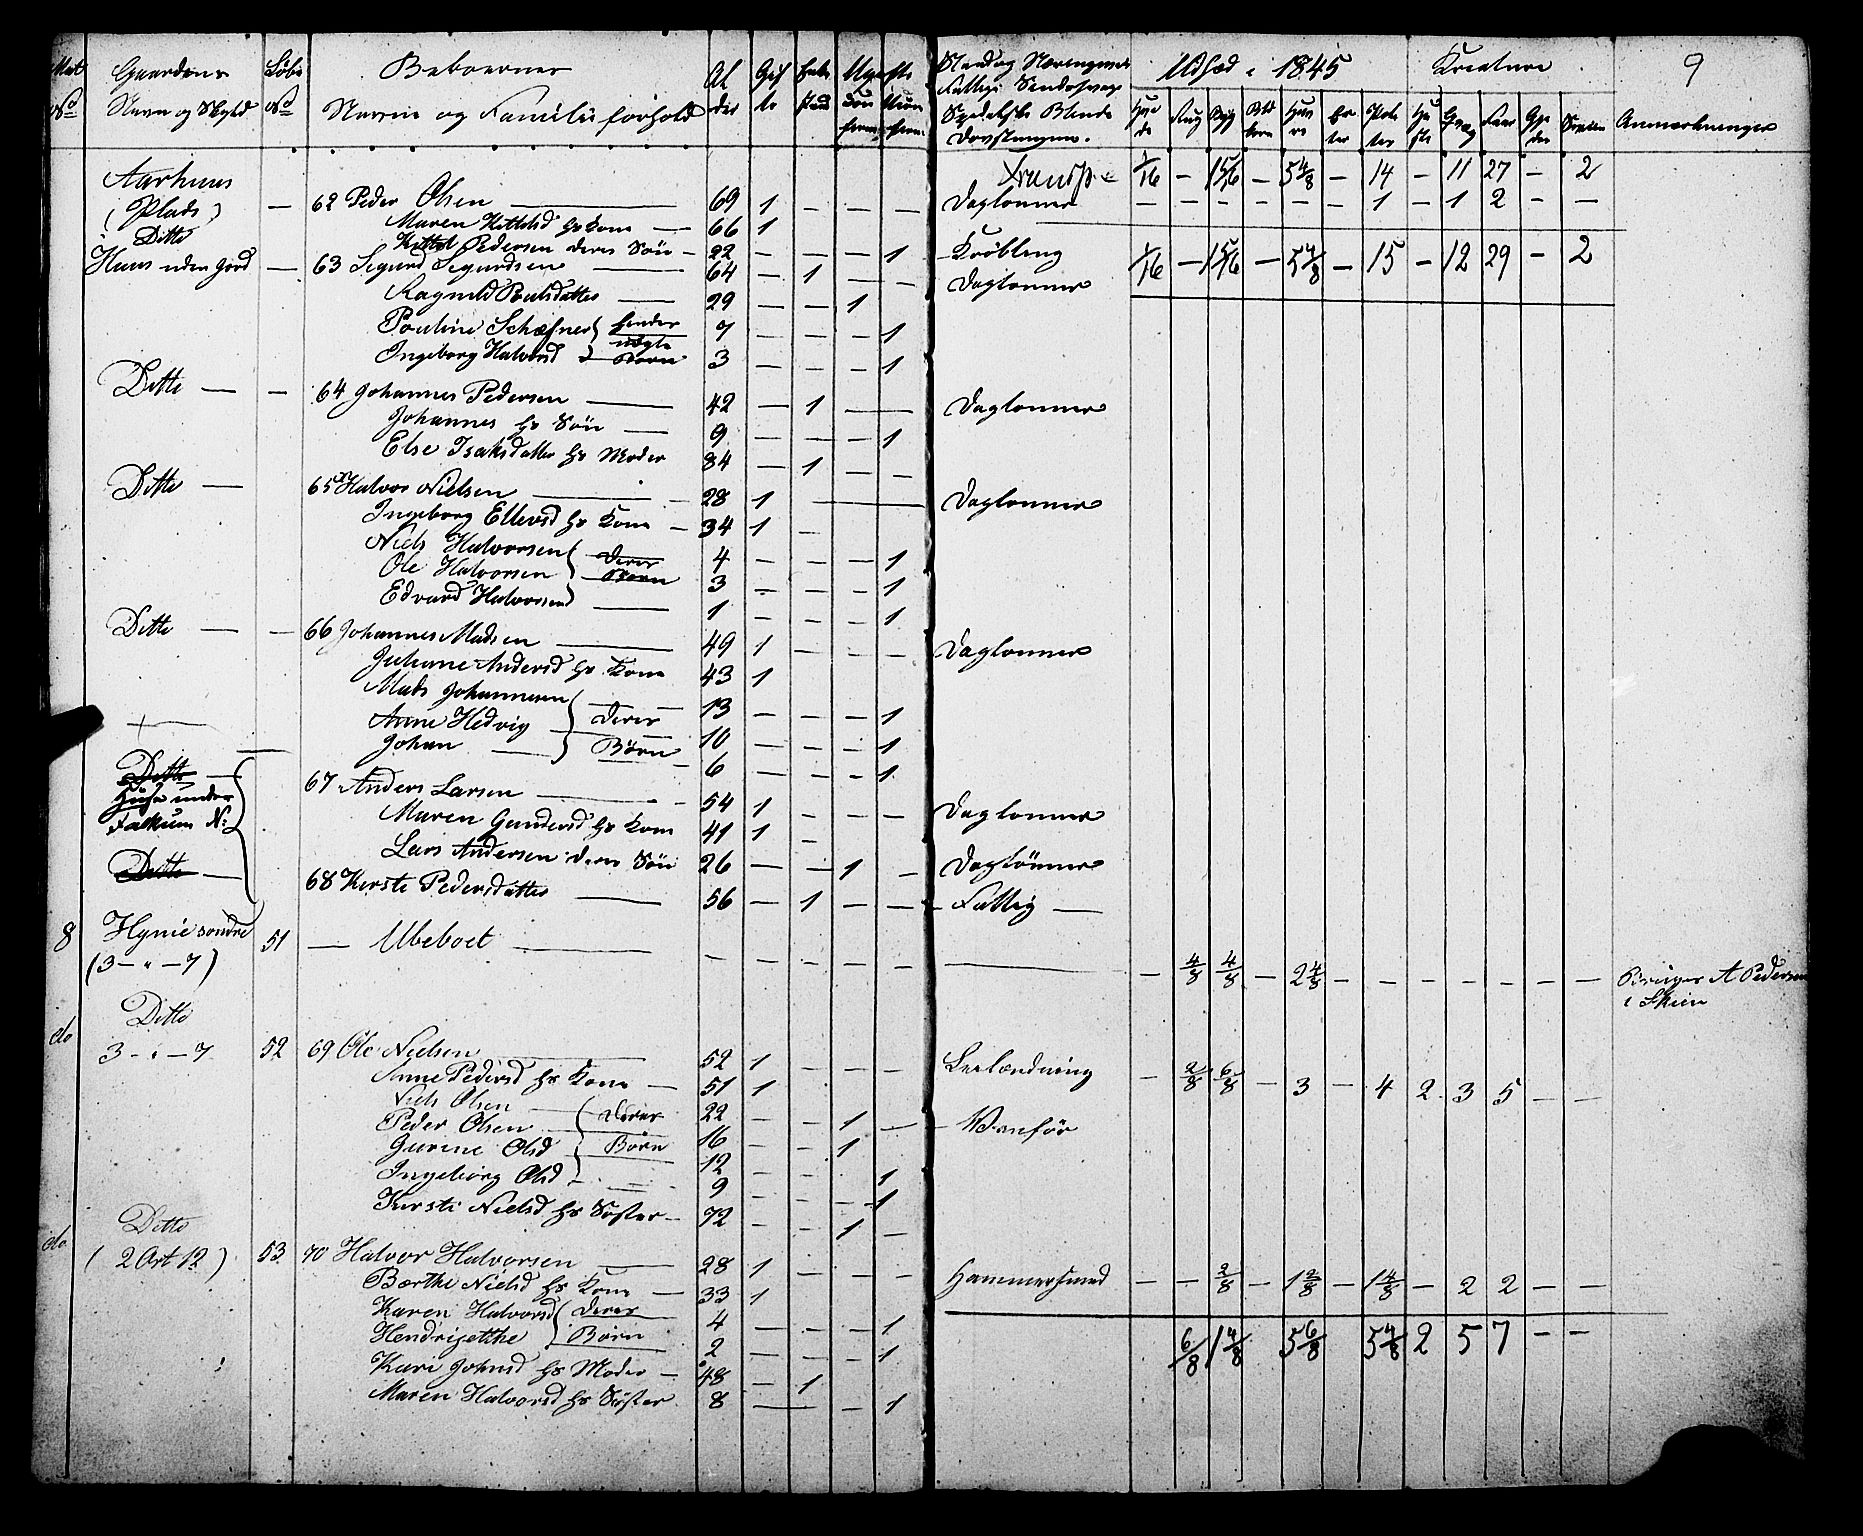 9
Mat No Gaardens Navn og Skyld Løbe No Beboernes Navne og Familieforhold Al der Gif te Enke stand Ugifte
Udsæd i 1845 Kreature
Anmærkninger
Aarhuus Transp 1/16 — 1 5/16 — 5 4/8 — 14 — 11 27 — 2
(Plads) — 62 Peder Olsen — 69 1 — — — Daglonner — — — — — — 1 — 1 2 — —
Ditto Maren Kittelsd hs Kone — 66 1
Kittel Pedersen deres Søn — 22 — — — 1 Krøbling 1/16 — 1 5/16 — 5 4/8 — 15 — 12 29 — 2
Huus uden Jord — 63 Sigurd Sigurdsen — 64 — 1 — — Daglonner
Ragnild Poulsdatter — 29 — — 1
Pouline 7 — — — 1
Ingeborg Halvorsd Børn 3 — — — 1
Ditto — — 64 Johannes Pedersen — 42 — 1 — — Daglonner
Johannes hs Søn — 9 — — — 1
Else Isaksdatter hs Moder 84 — 1 — —
Ditto — 65 Halvor Nielsen — 28 1 — Daglonner
Ingeborg Ellevsd hs Kone — 34 1 —
Niels Halvorsen deres 4 — — — 1
Ole Halvorsen Børn 3 — — — 1
Edvard Halvorsen — 1 — — — 1
Ditto — — 66 Johannes Madsen — 49 1 — — — Daglonner
Juliane Andersd hs Kone 43 1
Mads Johannesen — 13 — — — 1
Anne Hedvig deres 10 — — — 1
Johan — Børn 6 — — — 1
Ditto —
Huse under 67 Anders Larsen — 54 1 — — — Daglonner
Falkum N: Maren Gundersd hs Kone 41 1 —
Lars Andersen deres Søn 26 — — 1 — Daglonner
Ditto — 68 Kirsti Pedersdatter — 56 — 1 — — Fattig —
8 Hynie søndre 51 — Ubeboet — — — — — — — — 4/8 4/8 — 2 4/8 — — — — — — — Bruges A Pedersen
(3 — " — 7) i Skien
do Ditto
3 — " — 7 52 69 Ole Nielsen — 52 1 — — — Selvændning — 2/8 6/8 — 3 — 4 2 3 5 — —
Anne Pedersd hs Kone — 51 1
Niels Olsen — deres 22 — — 1 — Vanfør
Peder Olsen — Børn 16 — — 1
Gurine Olsd 12 — — — 1
Ingeborg Olsd — 9 — — — 1
Kirsti Nielsd hs Søster — 72 — — 1 —
do Ditto
(2 Ort 12) 53 70 Halvor Halvorsen — 28 1 — — — Hammersmed — — 2/8 — 1 2/8 — 1 4/8 — 2 2 — —
Berthe Nielsd hs Kone — 33 1
Karen Halvorsd deres 4 — — — 1
Hendrigetthe Børn 2 — — — 1 6/8 1 4/8 5 6/8 5 4/8 2 5 7 — —
Kari Johnsd hs Moder — 48 — 1
Maren Halvorsd hs Søster 8 — — 1